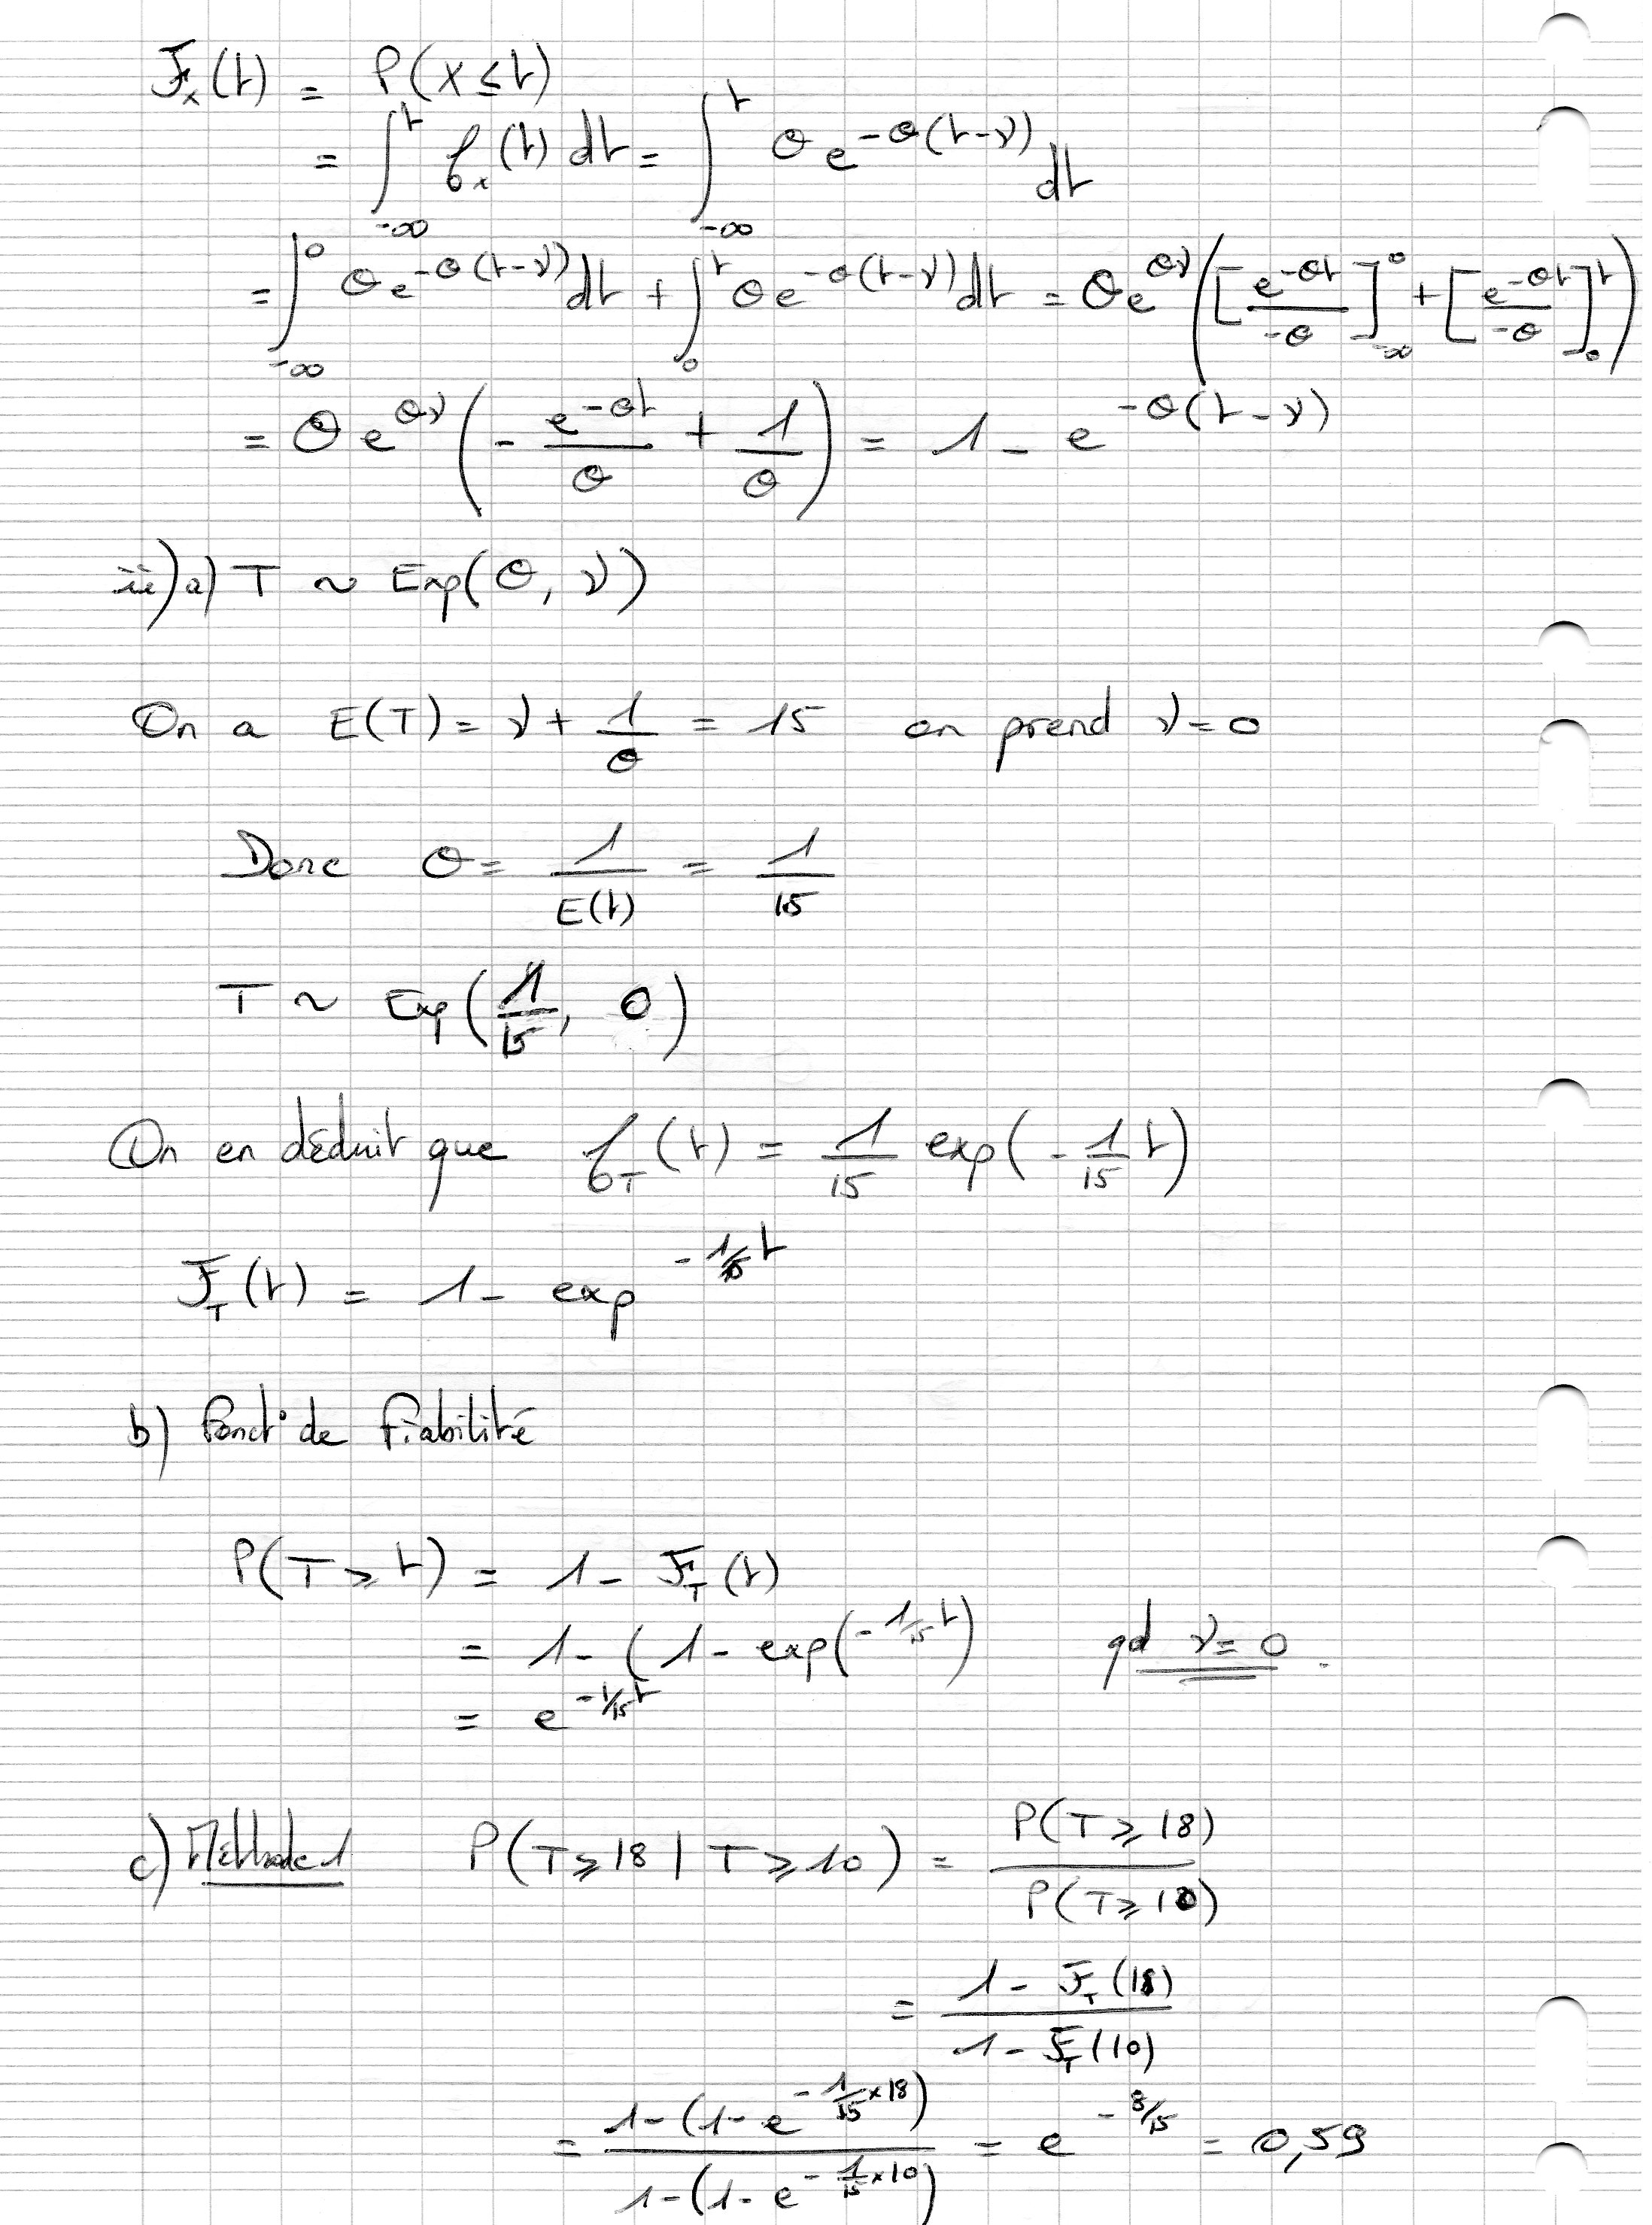 F_X(t) = P(X ≤ t)
= ∫_{-∞}^{t} f_X(t) dt = ∫_{-∞}^{t} θ e^{-θ(t-ν)} dt
= ∫_{-∞}^{0} θ e^{-θ(t-ν)} dt + ∫_{0}^{t} θ e^{-θ(t-ν)} dt = θ e^{θν} ( [ e^{-θt} / -θ ]_{-∞}^{0} + [ e^{-θt} / -θ ]_{0}^{t} )
= θ e^{θν} ( - e^{-θt} / θ + 1/θ ) = 1 - e^{-θ(t-ν)}
ii) a) T ~ Exp(θ, ν)
On a E(T) = ν + 1/θ = 15 on prend ν = 0
Donc θ = 1/E(t) = 1/15
T ~ Exp(1/15, 0)
On en déduit que f_T(t) = 1/15 exp(- 1/15 t)
F_T(t) = 1 - exp^{-1/15 t}
b) Fonct° de fiabilité
P(T ≥ t) = 1 - F_T(t)
= 1 - (1 - exp(^{-1/15 t}) qd ν = 0.
= e^{-1/15 t}
c) Méthode 1 P(T ≥ 18 | T ≥ 10) = P(T ≥ 18) / P(T ≥ 10)
= 1 - F_T(18) / 1 - F_T(10)
= 1 - (1 - e^{-1/15 × 18}) / 1 - (1 - e^{-1/15 × 10}) = e^{-8/15} = 0,59